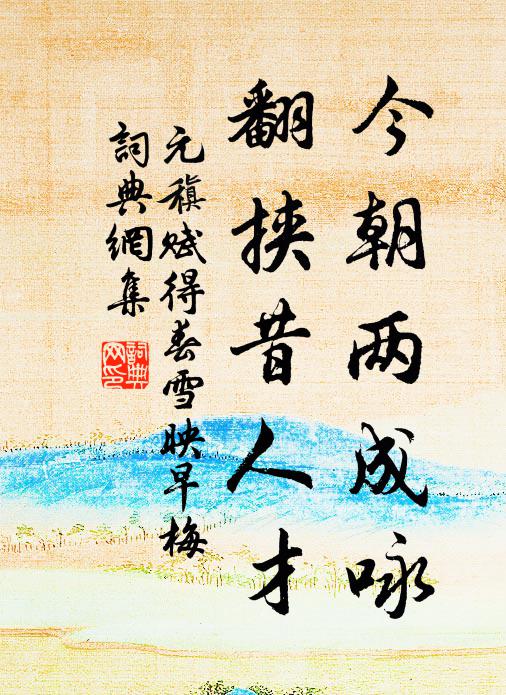 今朝两成咏
翻挟昔人才
元稹赋得春雪映早梅
詞典網集
詞典
网印